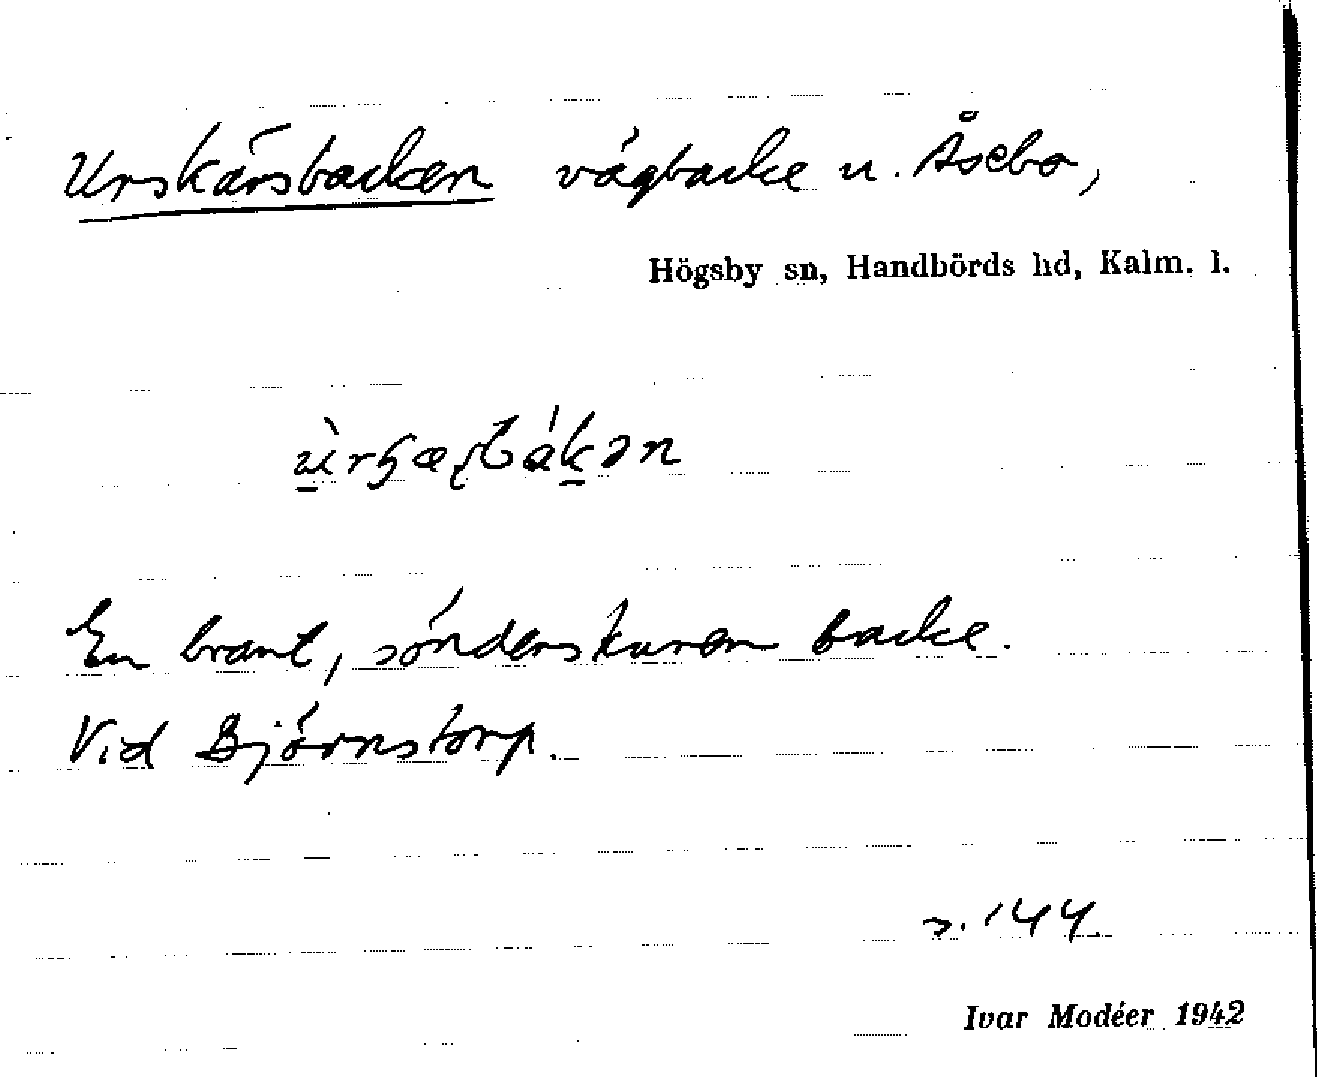 Urskärsbacken vägbacke u. Åsebo,
Högsby sn, Handbörds hd, Kalm. l.
En brant, sönderskuren backe.
Vid Björnstorp.
s. 144
Ivar Modéer 1942